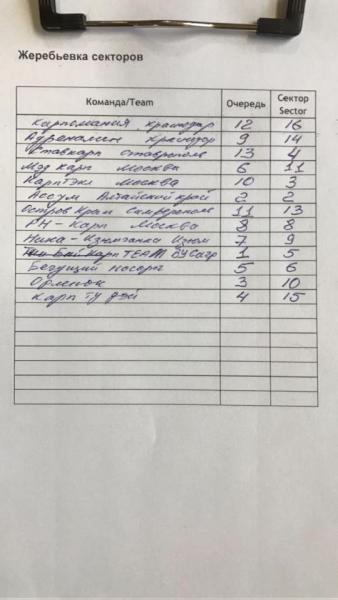 Жеребьевка секторов
Команда/Team Очередь Сектор Sector
Карпомания Краснодар 12 16
Адреналин Краснодар 9 14
Ставкарп Ставрополь 13 4
Мэд Карп Москва 6 11
КарпТэкл Москва 10 3
Ассум Алтайский край 2 2
остров Крым Симферополь 11 13
РН-Карп Москва 8 8
Ника- Изюм 7 9
Карп TEAM 1 5
Бегущий носорог 5 6
Орленок 3 10
Карп ТУ ДЭЙ 4 15